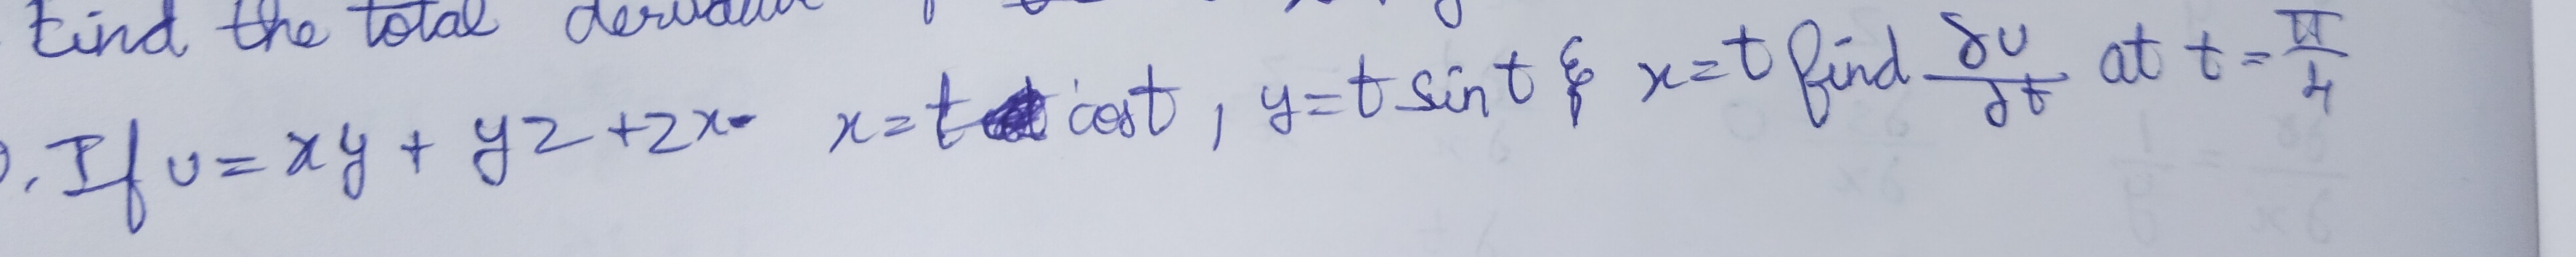 Find the total
. If u = xy + yz + zx x = t cost, y = t sin t & x = t find δu/δt at t = π/4